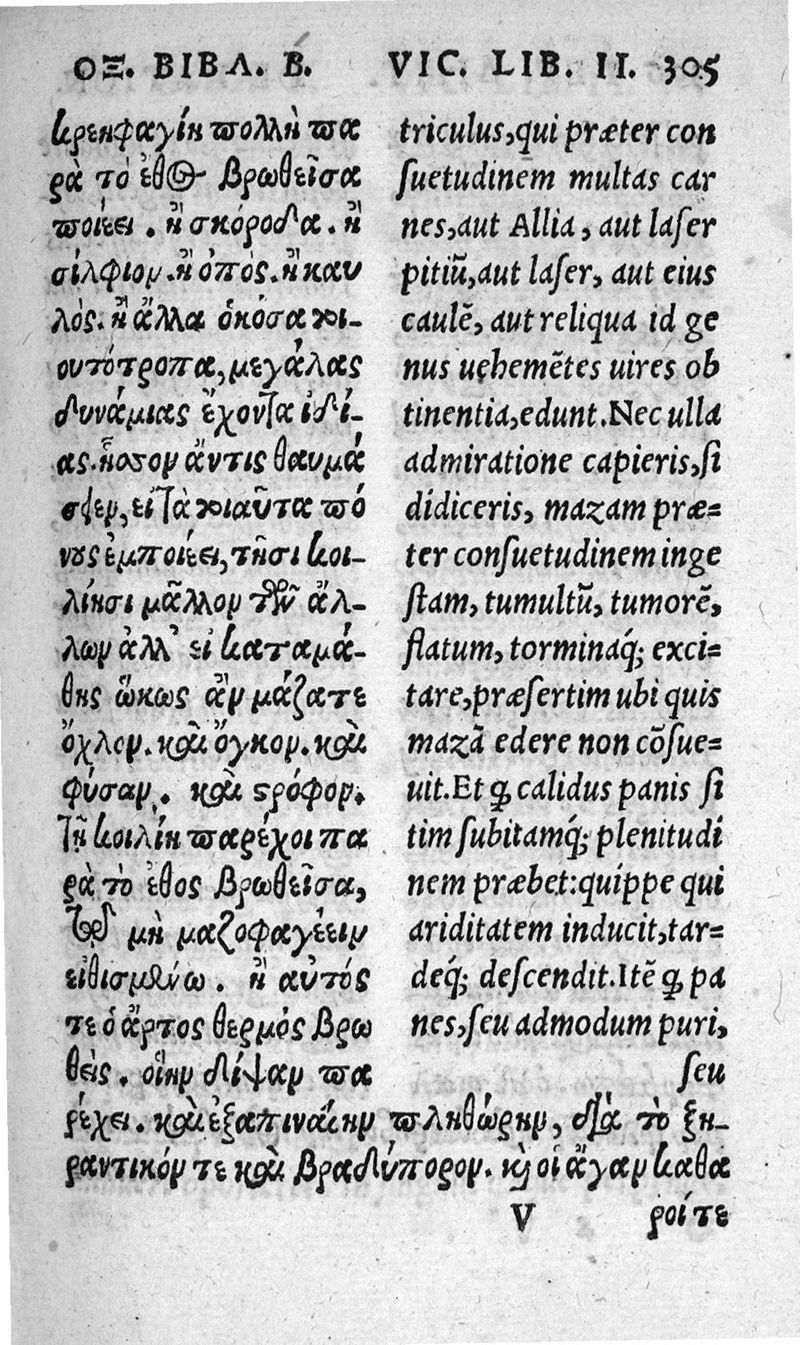 ΟΞ. ΒΙΒΛ. Β. VIC. LIB. II. 305
κρεηφαγίη πολλὴ πα
ρὰ τὸ ἔθος βρωθεῖσα
ποιέει . ἢ σκόροδα . ἢ
σίλφιον . ἢ ὀπός . ἢ καυ
λός . ἢ ἄλλα ὁκόσα τοι-
ουτότροπα, μεγάλας
δυνάμιας ἔχοντα ἰδί-
ας. ἧσσον ἄν τις θαυμά
σειεν, εἰ τὰ τοιαῦτα πό
νους ἐμποιέει, τῇσι κοι-
λίησι μᾶλλον τῶν ἄλ-
λων ἀλλ' εἰ καταμά-
θης ὥκως ἂν μάζα τε
ὄχλον . καὶ ὄγκον . καὶ
φύσαν . καὶ στρόφον .
τῇ κοιλίῃ παρέχοι πα
ρὰ τὸ ἔθος βρωθεῖσα,
τῷ μὴ μαζοφαγέειν
εἰθισμένῳ . ἢ αὐτός
τε ὁ ἄρτος θερμὸς βρω
θεὶς . οἵην δίψαν πα
ρέχει . καὶ ἐξαπιναίην πληθώρην, διὰ τὸ ξη-
ραντικόν τε καὶ βραδύπορον. καὶ οἱ ἄγαν καθα
ροί τε
triculus, qui præter con
suetudinem multas car
nes, aut Allia, aut laser
pitiũ, aut laser, aut eius
caulẽ, aut reliqua id ge
nus uehemẽtes uires ob
tinentia, edunt. Nec ulla
admiratione capieris, si
didiceris, mazam præ=
ter consuetudinem inge
stam, tumultũ, tumorẽ,
flatum, torminaq́; exci=
tare, præsertim ubi quis
mazã edere non cõsue=
uit. Et ꝙ calidus panis si
tim subitamq́; plenitudi
nem præbet: quippe qui
ariditatem inducit, tar=
deq́; descendit. Itẽ ꝙ pa
nes, seu admodum puri,
seu
V